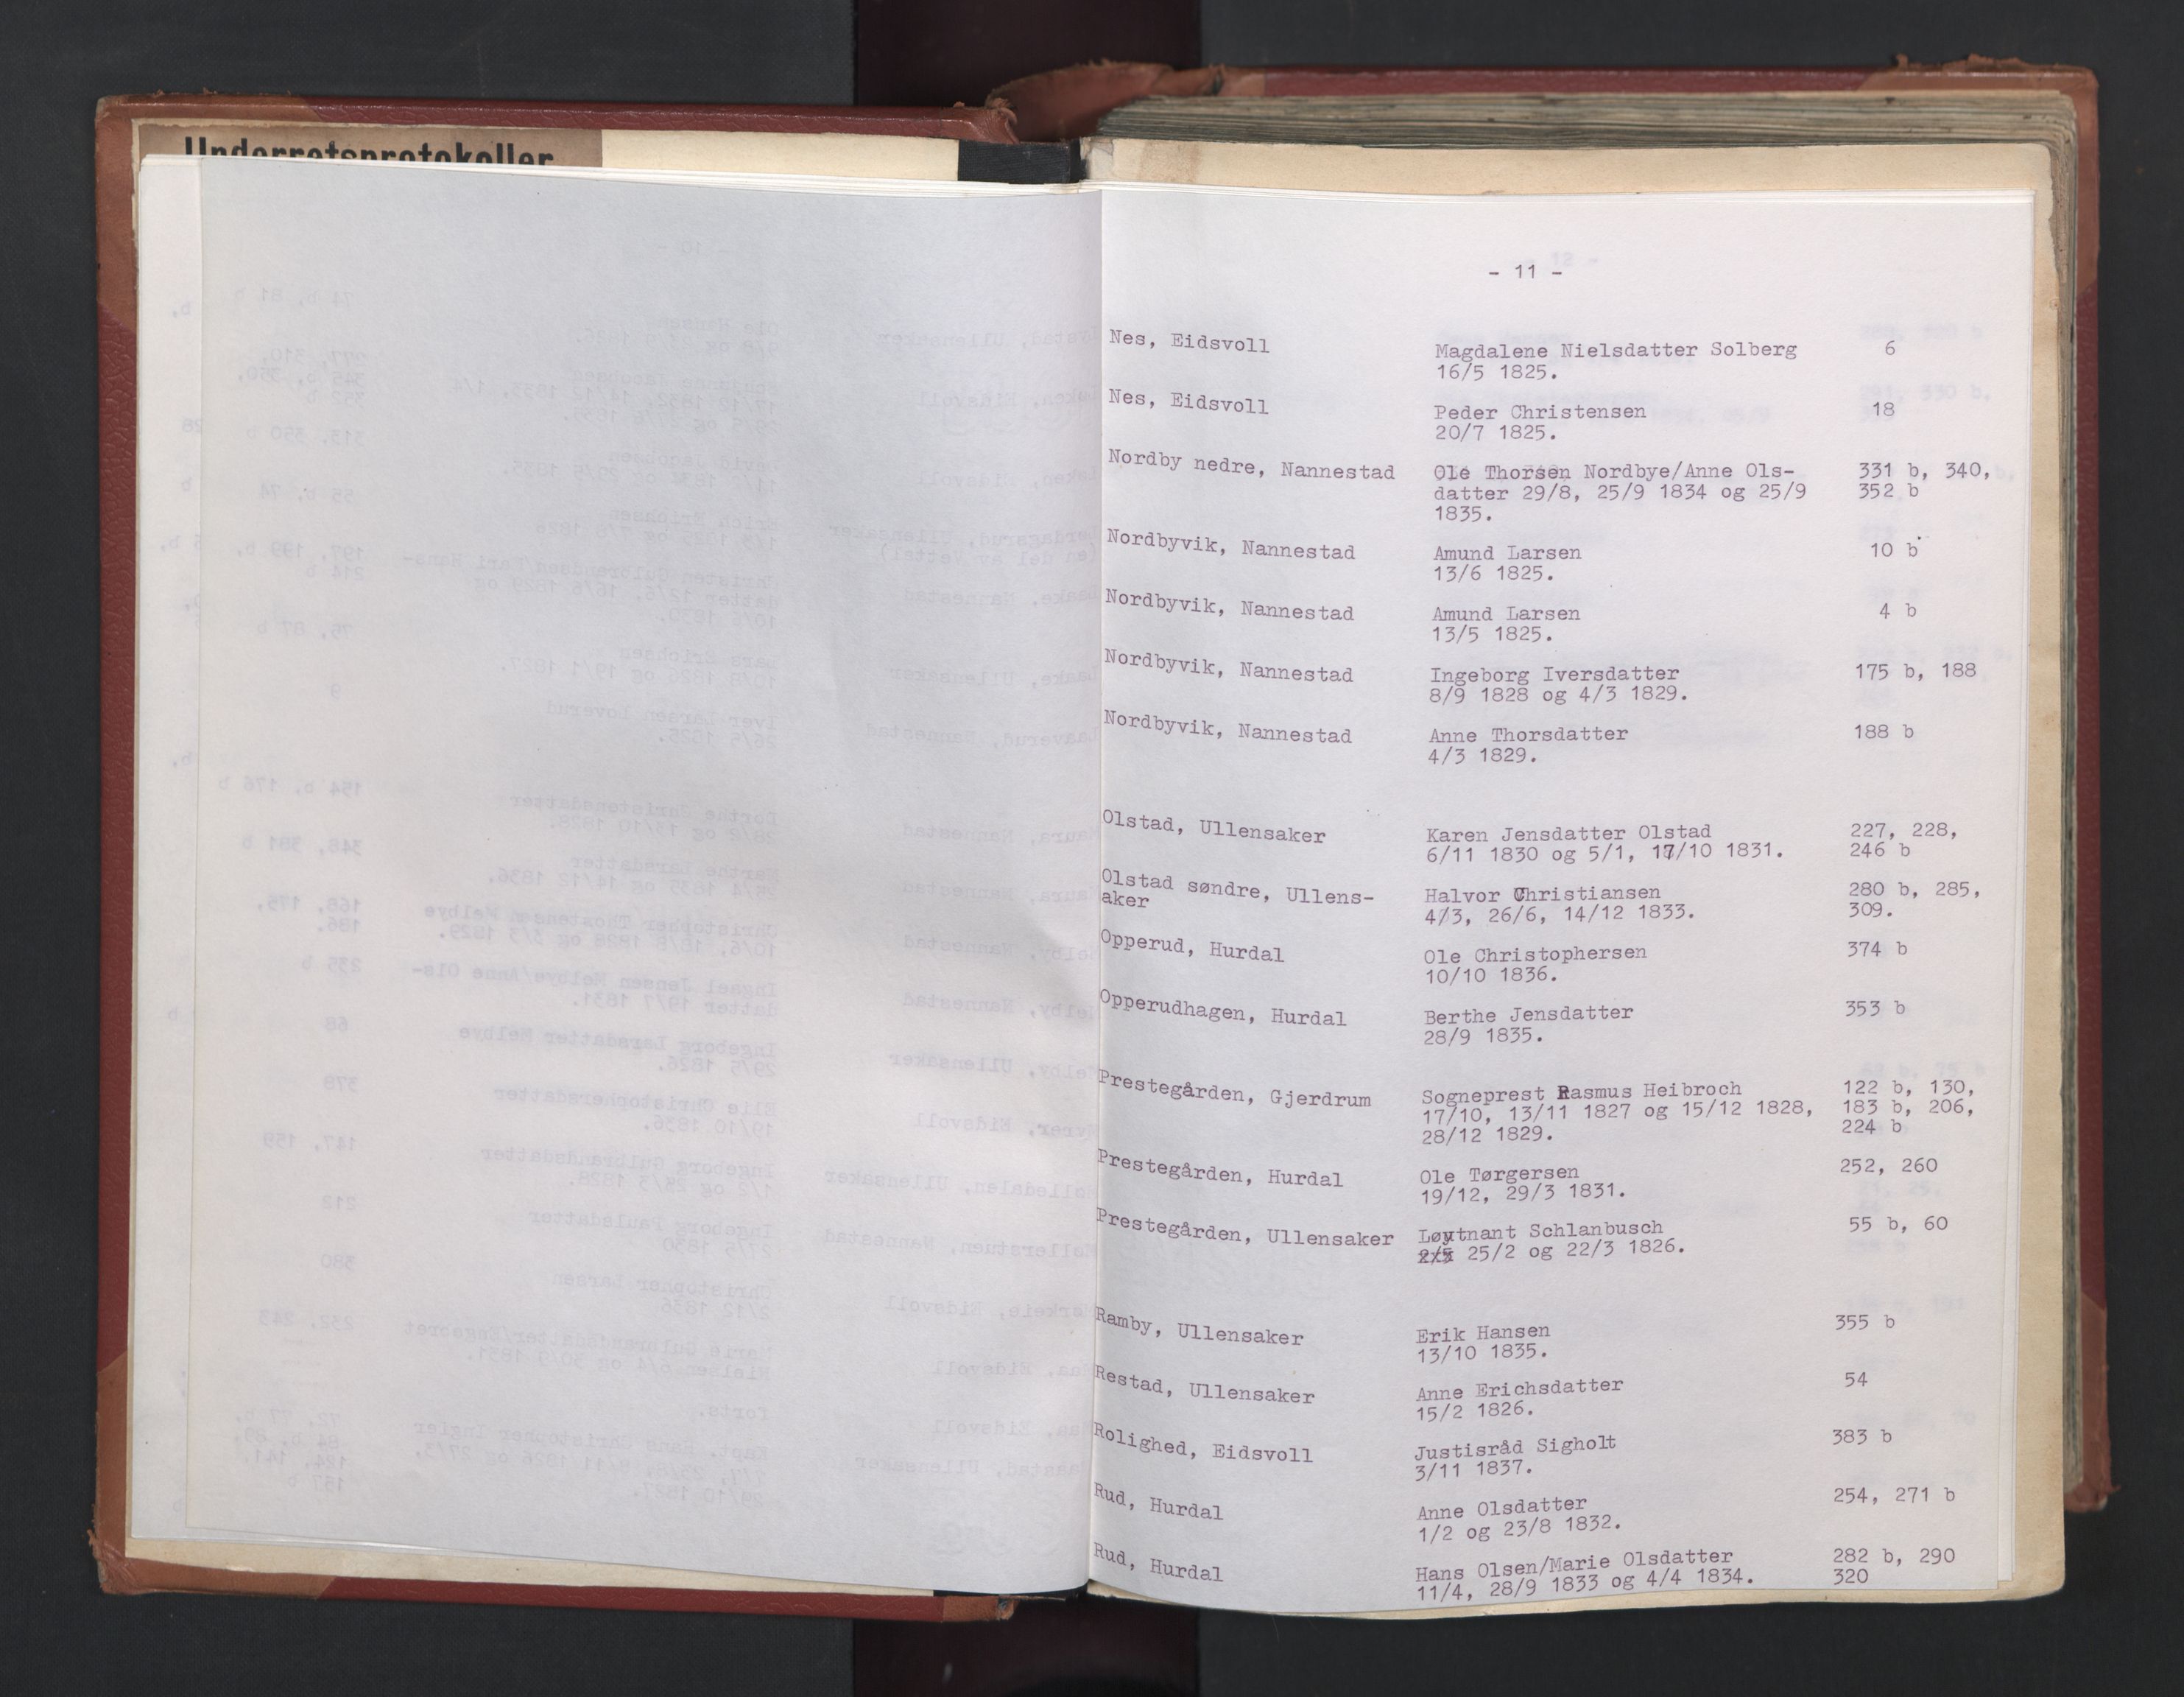 Underretsprotokoller
- 11 -
Nes, Eidsvoll Magdalene Nielsdatter Solberg 6
16/5 1825.
Nes, Eidsvoll Peder Christensen 18
20/7 1825.
Nordby nedre, Nannestad Ole Thorsen Nordbye/Anne Ols- 331 b, 340,
datter 29/8, 25/9 1834 og 25/9 352 b
1835.
Nordbyvik, Nannestad Amund Larsen 10 b
13/6 1825.
Nordbyvik, Nannestad Amund Larsen 4 b
13/5 1825.
Nordbyvik, Nannestad Ingeborg Iversdatter 175 b, 188
8/9 1828 og 4/3 1829.
Nordbyvik, Nannestad Anne Thorsdatter 188 b
4/3 1829.
Olstad, Ullensaker Karen Jensdatter Olstad 227, 228,
6/11 1830 og 5/1, /10 1831. 246 b
Olstad søndre, Ullens- Halvor Christiansen 280 b, 285,
aker 4/3, 26/6, 14/12 1833. 309.
Opperud, Hurdal Ole Christophersen 374 b
10/10 1836.
Opperudhagen, Hurdal Berthe Jensdatter 353 b
28/9 1835.
Prestegården, Gjerdrum Sogneprest Rasmus Heibroch 122 b, 130,
17/10, 13/11 1827 og 15/12 1828, 183 b, 206,
28/12 1829. 224 b
Prestegården, Hurdal Ole Tørgersen 252, 260
19/12, 29/3 1831.
Prestegården, Ullensaker Løytnant Schlanbusch 55 b, 60
25/2 og 22/3 1826.
Ramby, Ullensaker Erik Hansen 355 b
13/10 1835.
Restad, Ullensaker Anne Erichsdatter 54
15/2 1826.
Rolighed, Eidsvoll Justisråd Sigholt 383 b
3/11 1837.
Rud, Hurdal Anne Olsdatter 254, 271 b
1/2 og 23/8 1832.
Rud, Hurdal Hans Olsen/Marie Olsdatter 282 b, 290
11/4, 28/9 1833 og 4/4 1834. 320